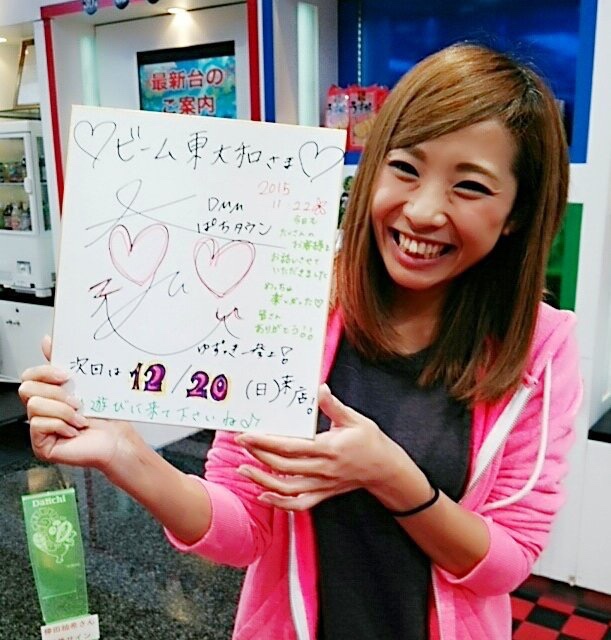 最新台の
ご案内
♡ビーム東大和さま♡
2015
11.22
DMM
ぱちタウン
今日も
たくさんの
お客様と
お話しさせて
いただきました
めっちゃ
楽しかった♡
皆さん
ありがとう!!
次回は 12/20 (日) 来店!
遊びに来て下さいね♪
Daiichi